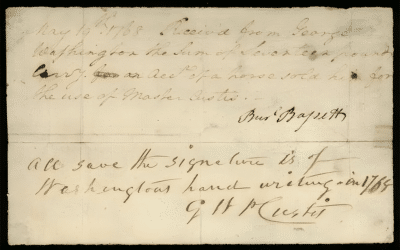 May 19th 1768 Receiv'd from George
Washington the Sum of Seventeen pounds
Curr'y. for on acct of a horse sold him for
the use of Master Custis.
Burl Bassett
All save the signature is of
Washingtons hand writing - in 1768
G W P Custis